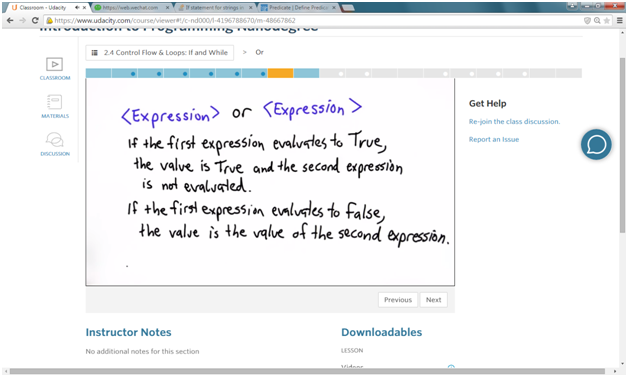 Classroom - Udacity
https://web.wechat.com
If statement for strings in
Predicate | Define Predic
https://www.udacity.com/course/viewer#!/c-nd000/l-4196788670/m-48667862
Introduction to Programming Nanodegree
2.4 Control Flow & Loops: If and While > Or
CLASSROOM
MATERIALS
DISCUSSION
<Expression> or <Expression>
If the first expression evaluates to True,
the value is True and the second expression
is not evaluated.
If the first expression evaluates to False,
the value is the value of the second expression.
Get Help
Re-join the class discussion.
Report an Issue
Previous Next
Instructor Notes
No additional notes for this section
Downloadables
LESSON
Videos